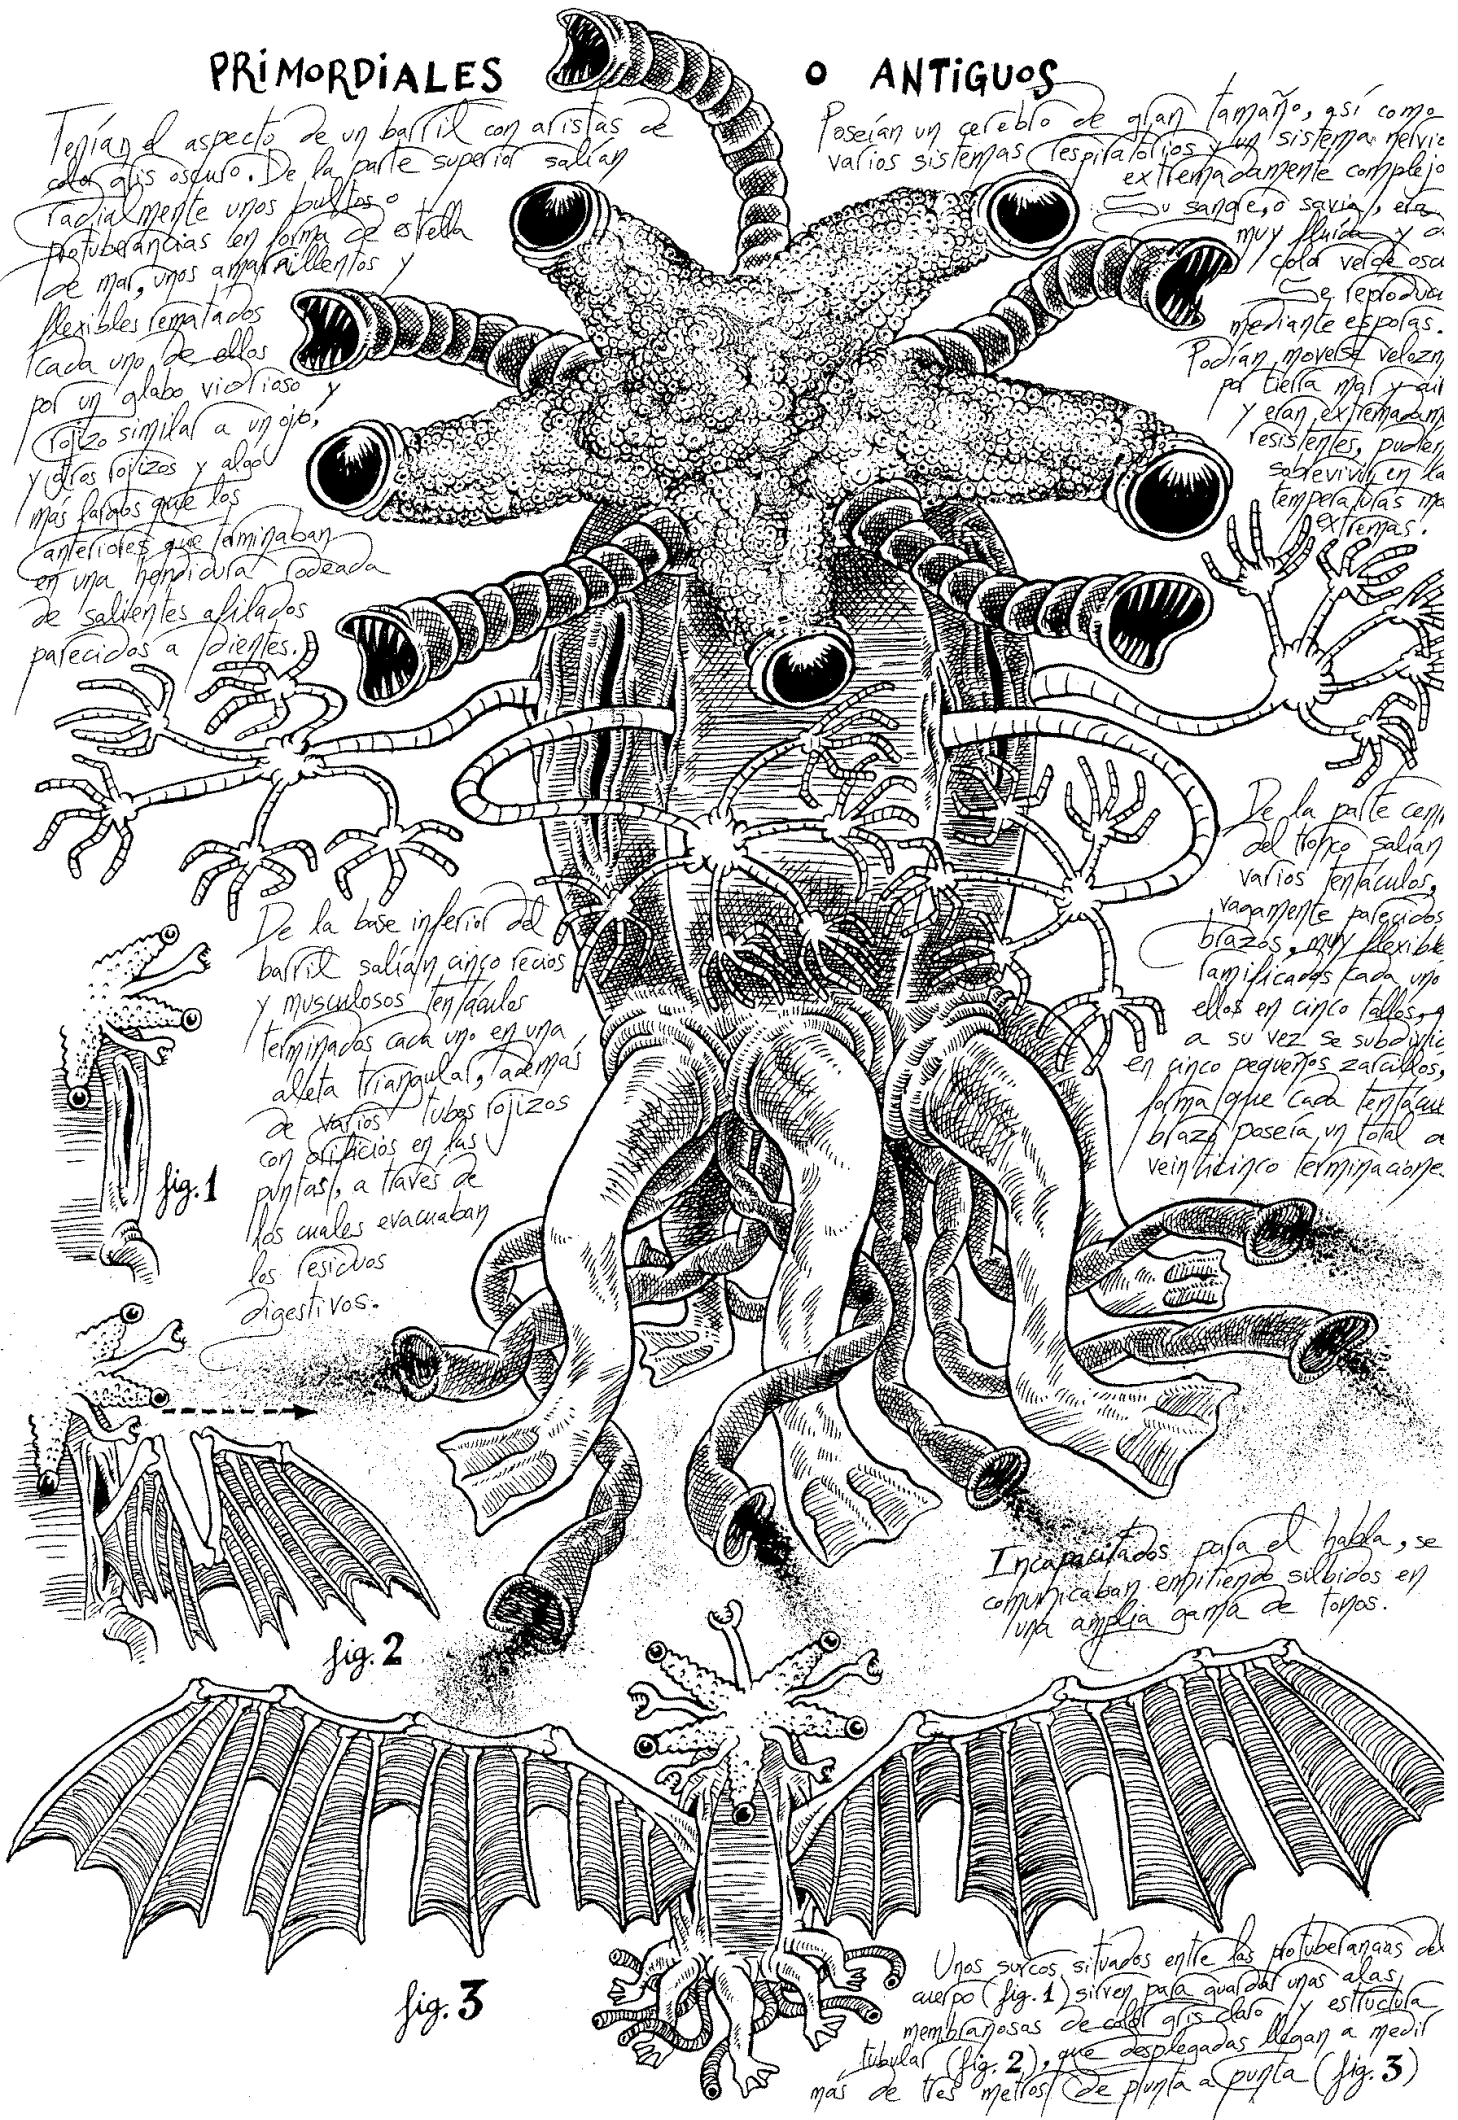 PRIMORDIALES O ANTIGUOS
Tenían el aspecto de un barril con aristas de
color gris oscuro. De la parte superior salían
radialmente unos bultos o
protuberancias en forma de estrella
de mar, unos amarillentos y
flexibles rematados
cada uno de ellos
por un globo vidrioso y
rojizo similar a un ojo,
y otros rojizos y algo
más largos que los
anteriores que terminaban
en una hendidura rodeada
de salientes afilados
parecidos a dientes.
Poseían un cerebro de gran tamaño, así como
varios sistemas respiratorios y un sistema nervio
extremadamente complejo
Su sangre, o savia, era
muy fluida y
color verde oscu
Se reproducí
mediante esporas.
Podían moverse velozm
por tierra mar y air
y eran extremadam
resistentes, pudien
sobrevivir en la
temperaturas má
extremas.
De la parte cen
del tronco salían
varios tentáculos,
vagamente parecidos
brazos, muy flexible
ramificados cada uno
ellos en cinco tallos,
a su vez se subdivid
en cinco pequeños zarcillos,
forma que cada tentácu
brazo poseía un total
veinticinco terminacione
De la base inferior del
barril salían cinco recios
y musculosos tentáculos
terminados cada uno en una
aleta triangular, además
de varios tubos rojizos
con orificios en las
puntas, a través de
los cuales evacuaban
los residuos
digestivos.
fig. 1
fig. 2
Incapacitados para el habla, se
comunicaban emitiendo silbidos en
una amplia gama de tonos.
fig. 3
Unos surcos situados entre las protuberancias del
cuerpo (fig. 1) sirven para guardar unas alas
membranosas de color gris claro y estructura
tubular (fig. 2), que desplegadas llegan a medir
más de tres metros de punta a punta (fig. 3)